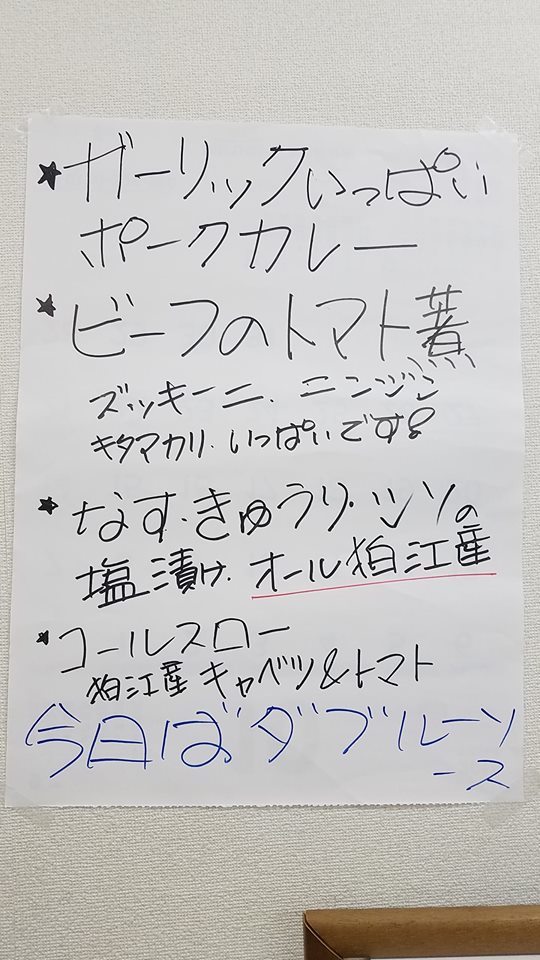 ★ガーリックいっぱい
ポークカレー
★ビーフのトマト煮
ズッキーニ、ニンジン
キタマカリ、いっぱいです!
★なす、きゅうり、シソの
塩漬け、オール狛江産
★コールスロー
狛江産キャベツ&トマト
今日ばダブルーソ
ース